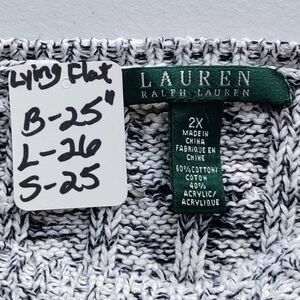 Lying Flat
B-25"
L-26
S-25
LAUREN
RALPH LAUREN
2X
MADE IN
CHINA
FABRIQUE EN
CHINE
60% COTTON/
COTON
40%
ACRYLIC/
ACRYLIQUE